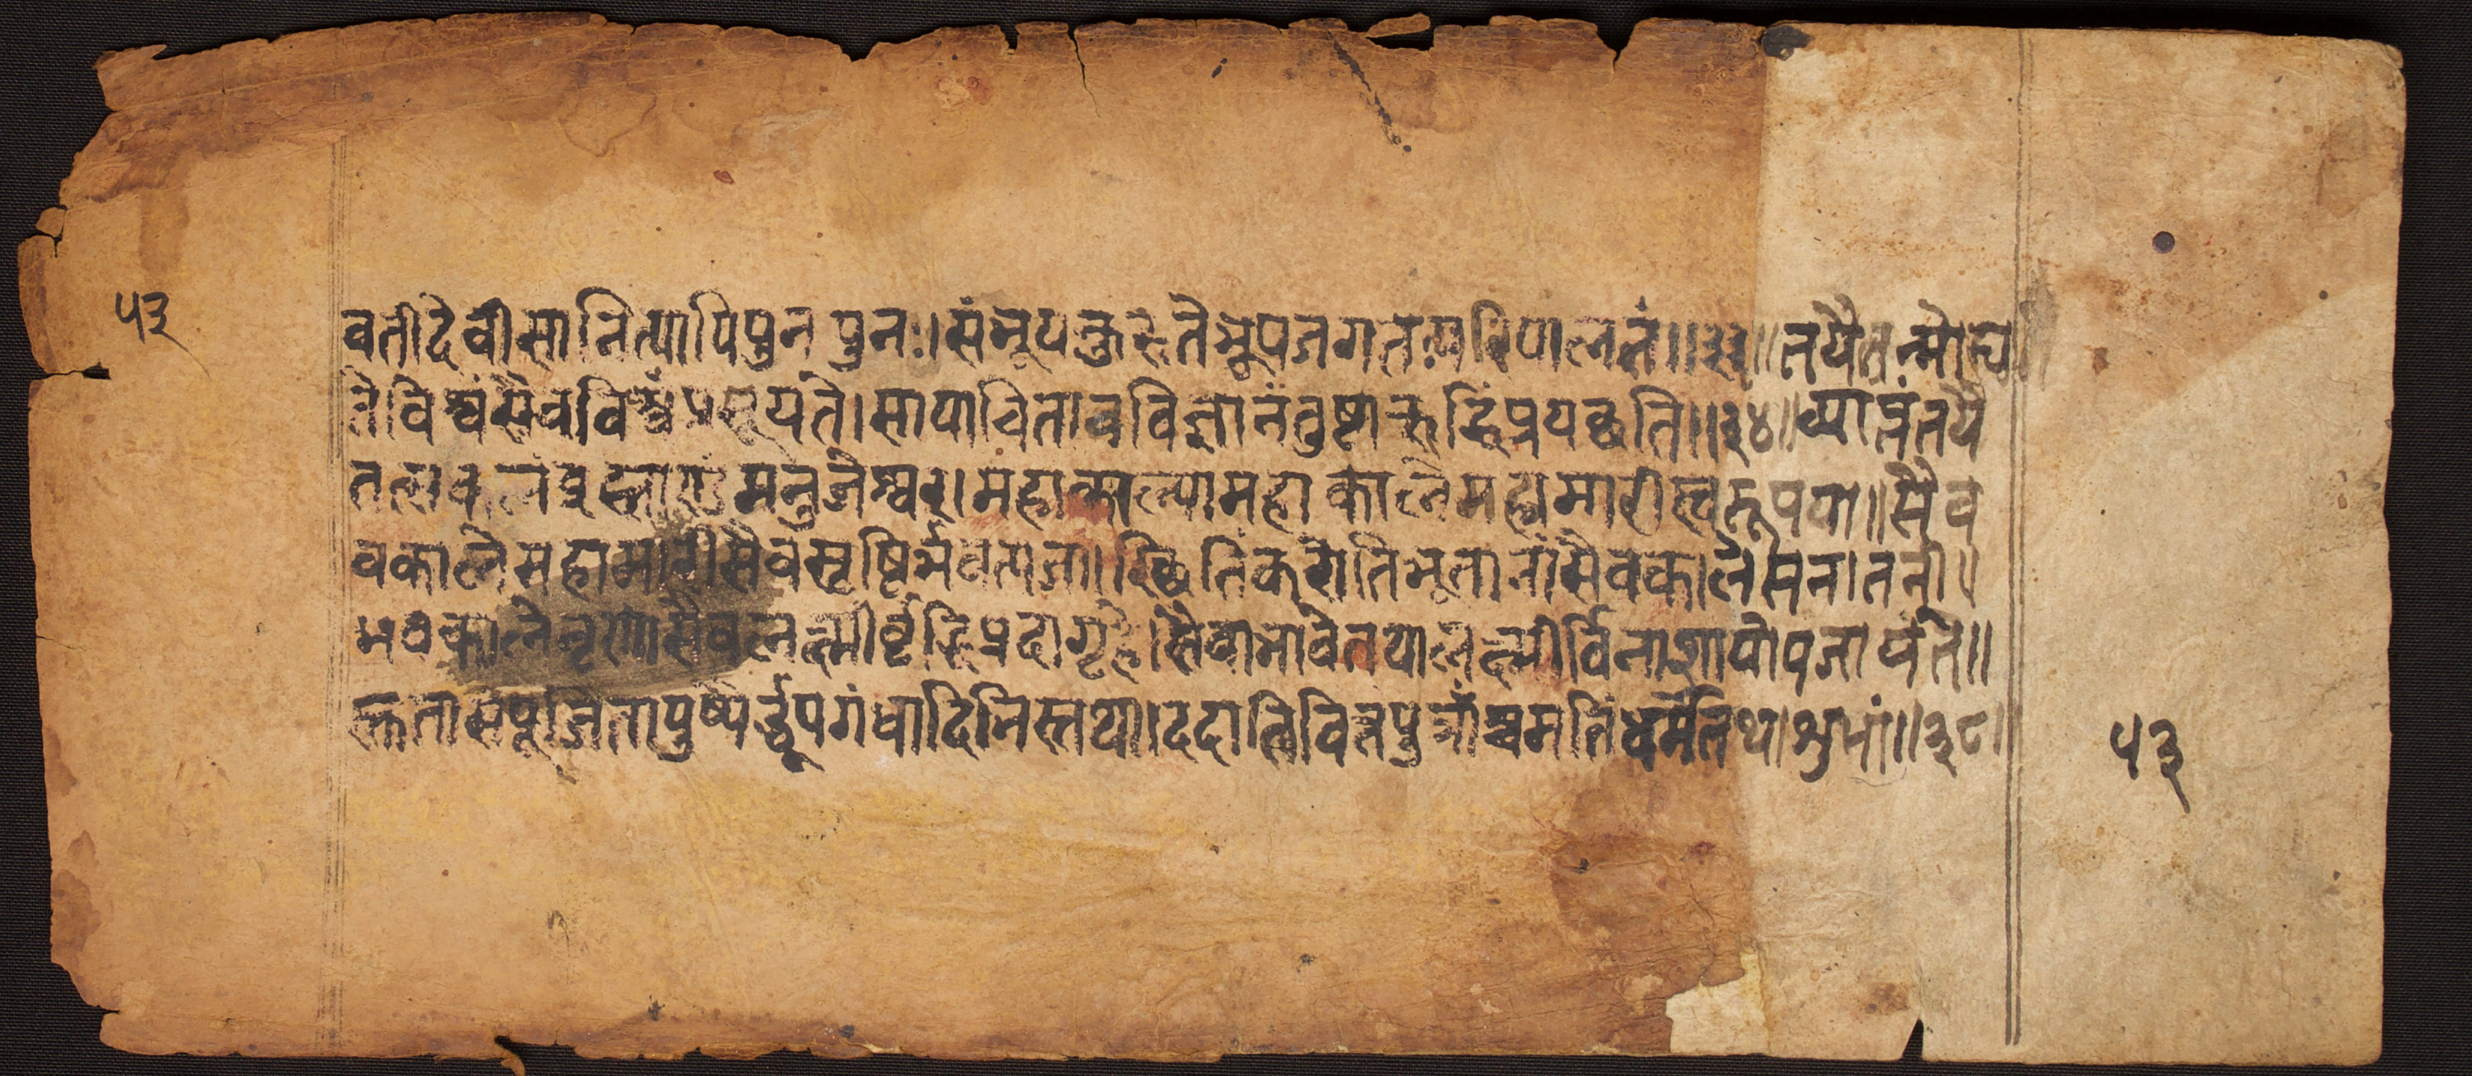 ५३
वतीदेवीसानित्यापिपुनपुनः।संभूयकुरुतेभूपजगतःपरिपालनं॥३३॥तयैतन्मोह्य
तेविश्वंसैवविश्वंप्रसूयते।सायाचितावविज्ञानंतुष्टाऋद्धिंप्रयच्छति॥३४॥व्याप्तंतयै
तत्सकलंब्रह्माण्डंमनुजेश्वर।महाकाल्यामहाकालेमहामारीस्वरूपया॥सैव
वकालेमहामारीसैवसृष्टिर्भवत्यजा।स्थितिंकरोतिभूतानांसैवकालेसनातनी॥
भवकालेनृणांसैवलक्ष्मीर्वृद्धिप्रदागृहे।सैवाभावेतथालक्ष्मीर्विनाशायोपजायते॥
स्तुतासंपूजितापुष्पैर्द्धूपगंधादिभिस्तथा।ददातिवित्तपुत्रांश्चमतिंधर्मेतथाशुभां॥३८॥
५३